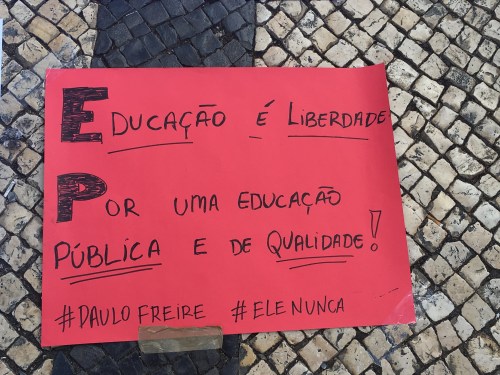 EDUCAÇÃO É LIBERDADE
POR UMA EDUCAÇÃO
PÚBLICA E DE QUALIDADE!
#PAULO FREIRE #ELENUNCA